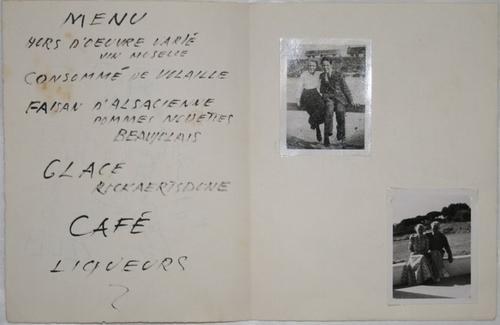 MENU
HORS D'OEUVRE VARIÉ
VIN MOSELLE
CONSOMMÉ DE VOLAILLE
FAISAN D'ALSACIENNE
POMMES NOISETTES
BEAUJOLAIS
GLACE
CAFÉ
LIQUEURS